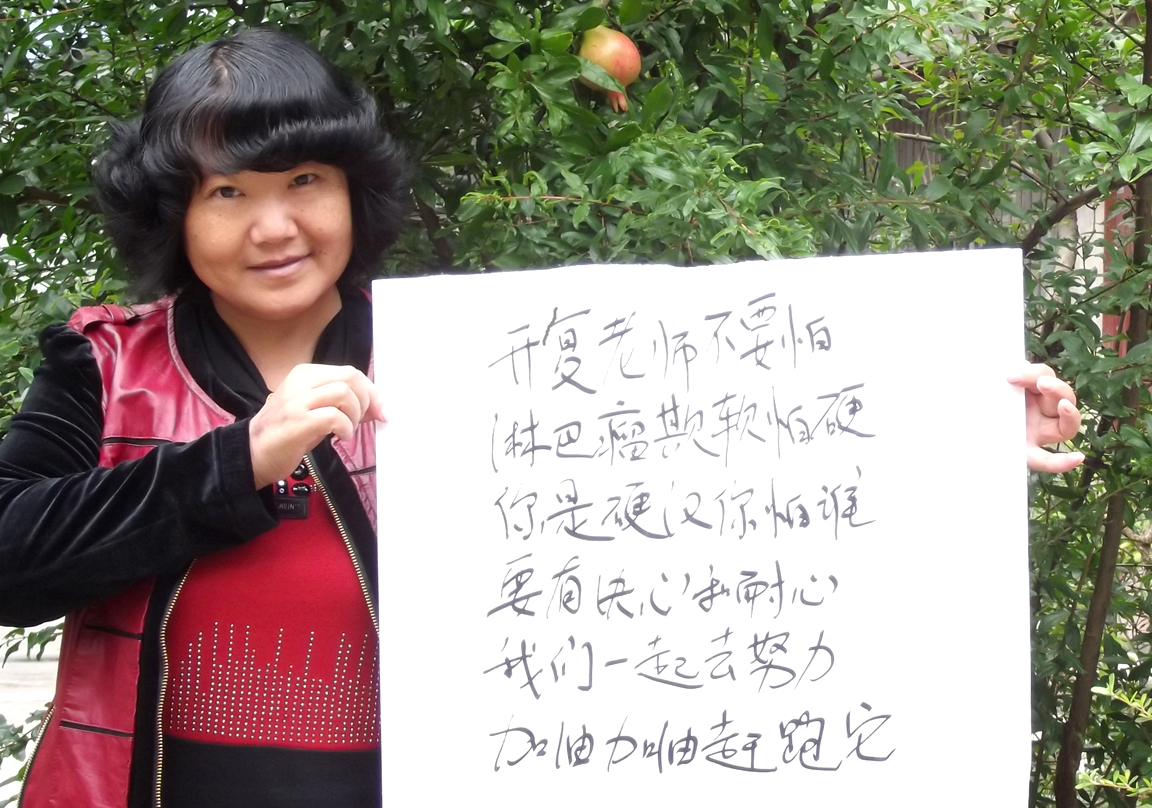 开复老师不要怕
淋巴瘤欺软怕硬
你是硬汉你怕谁
要有决心和耐心
我们一起去努力
加油加油赶跑它